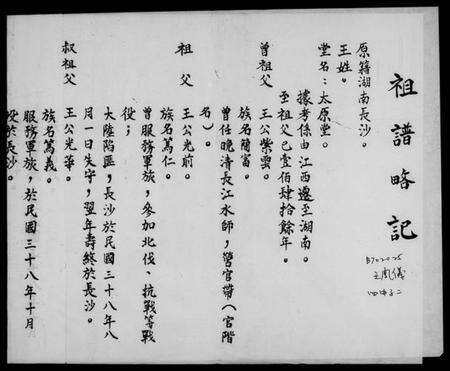 祖譜略記
B702025
王鳳儀
原籍湖南長沙。
王姓。
堂名：太原堂。
據考係由江西遷至湖南。
至祖父已壹佰肆拾餘年。
曾祖父 王公紫雲。
族名簡富。
曾任晚清長江水師，管官帶（官階
名）。
祖父 王公光前。
族名篤仁。
曾服務軍旅，參加北伐、抗戰等戰
役；
大陸陷匪，長沙於民國三十八年八
月一日失守，翌年壽終於長沙。
叔祖父 王公光華。
族名篤義。
服務軍旅，於民國三十八年十月
歿於長沙。